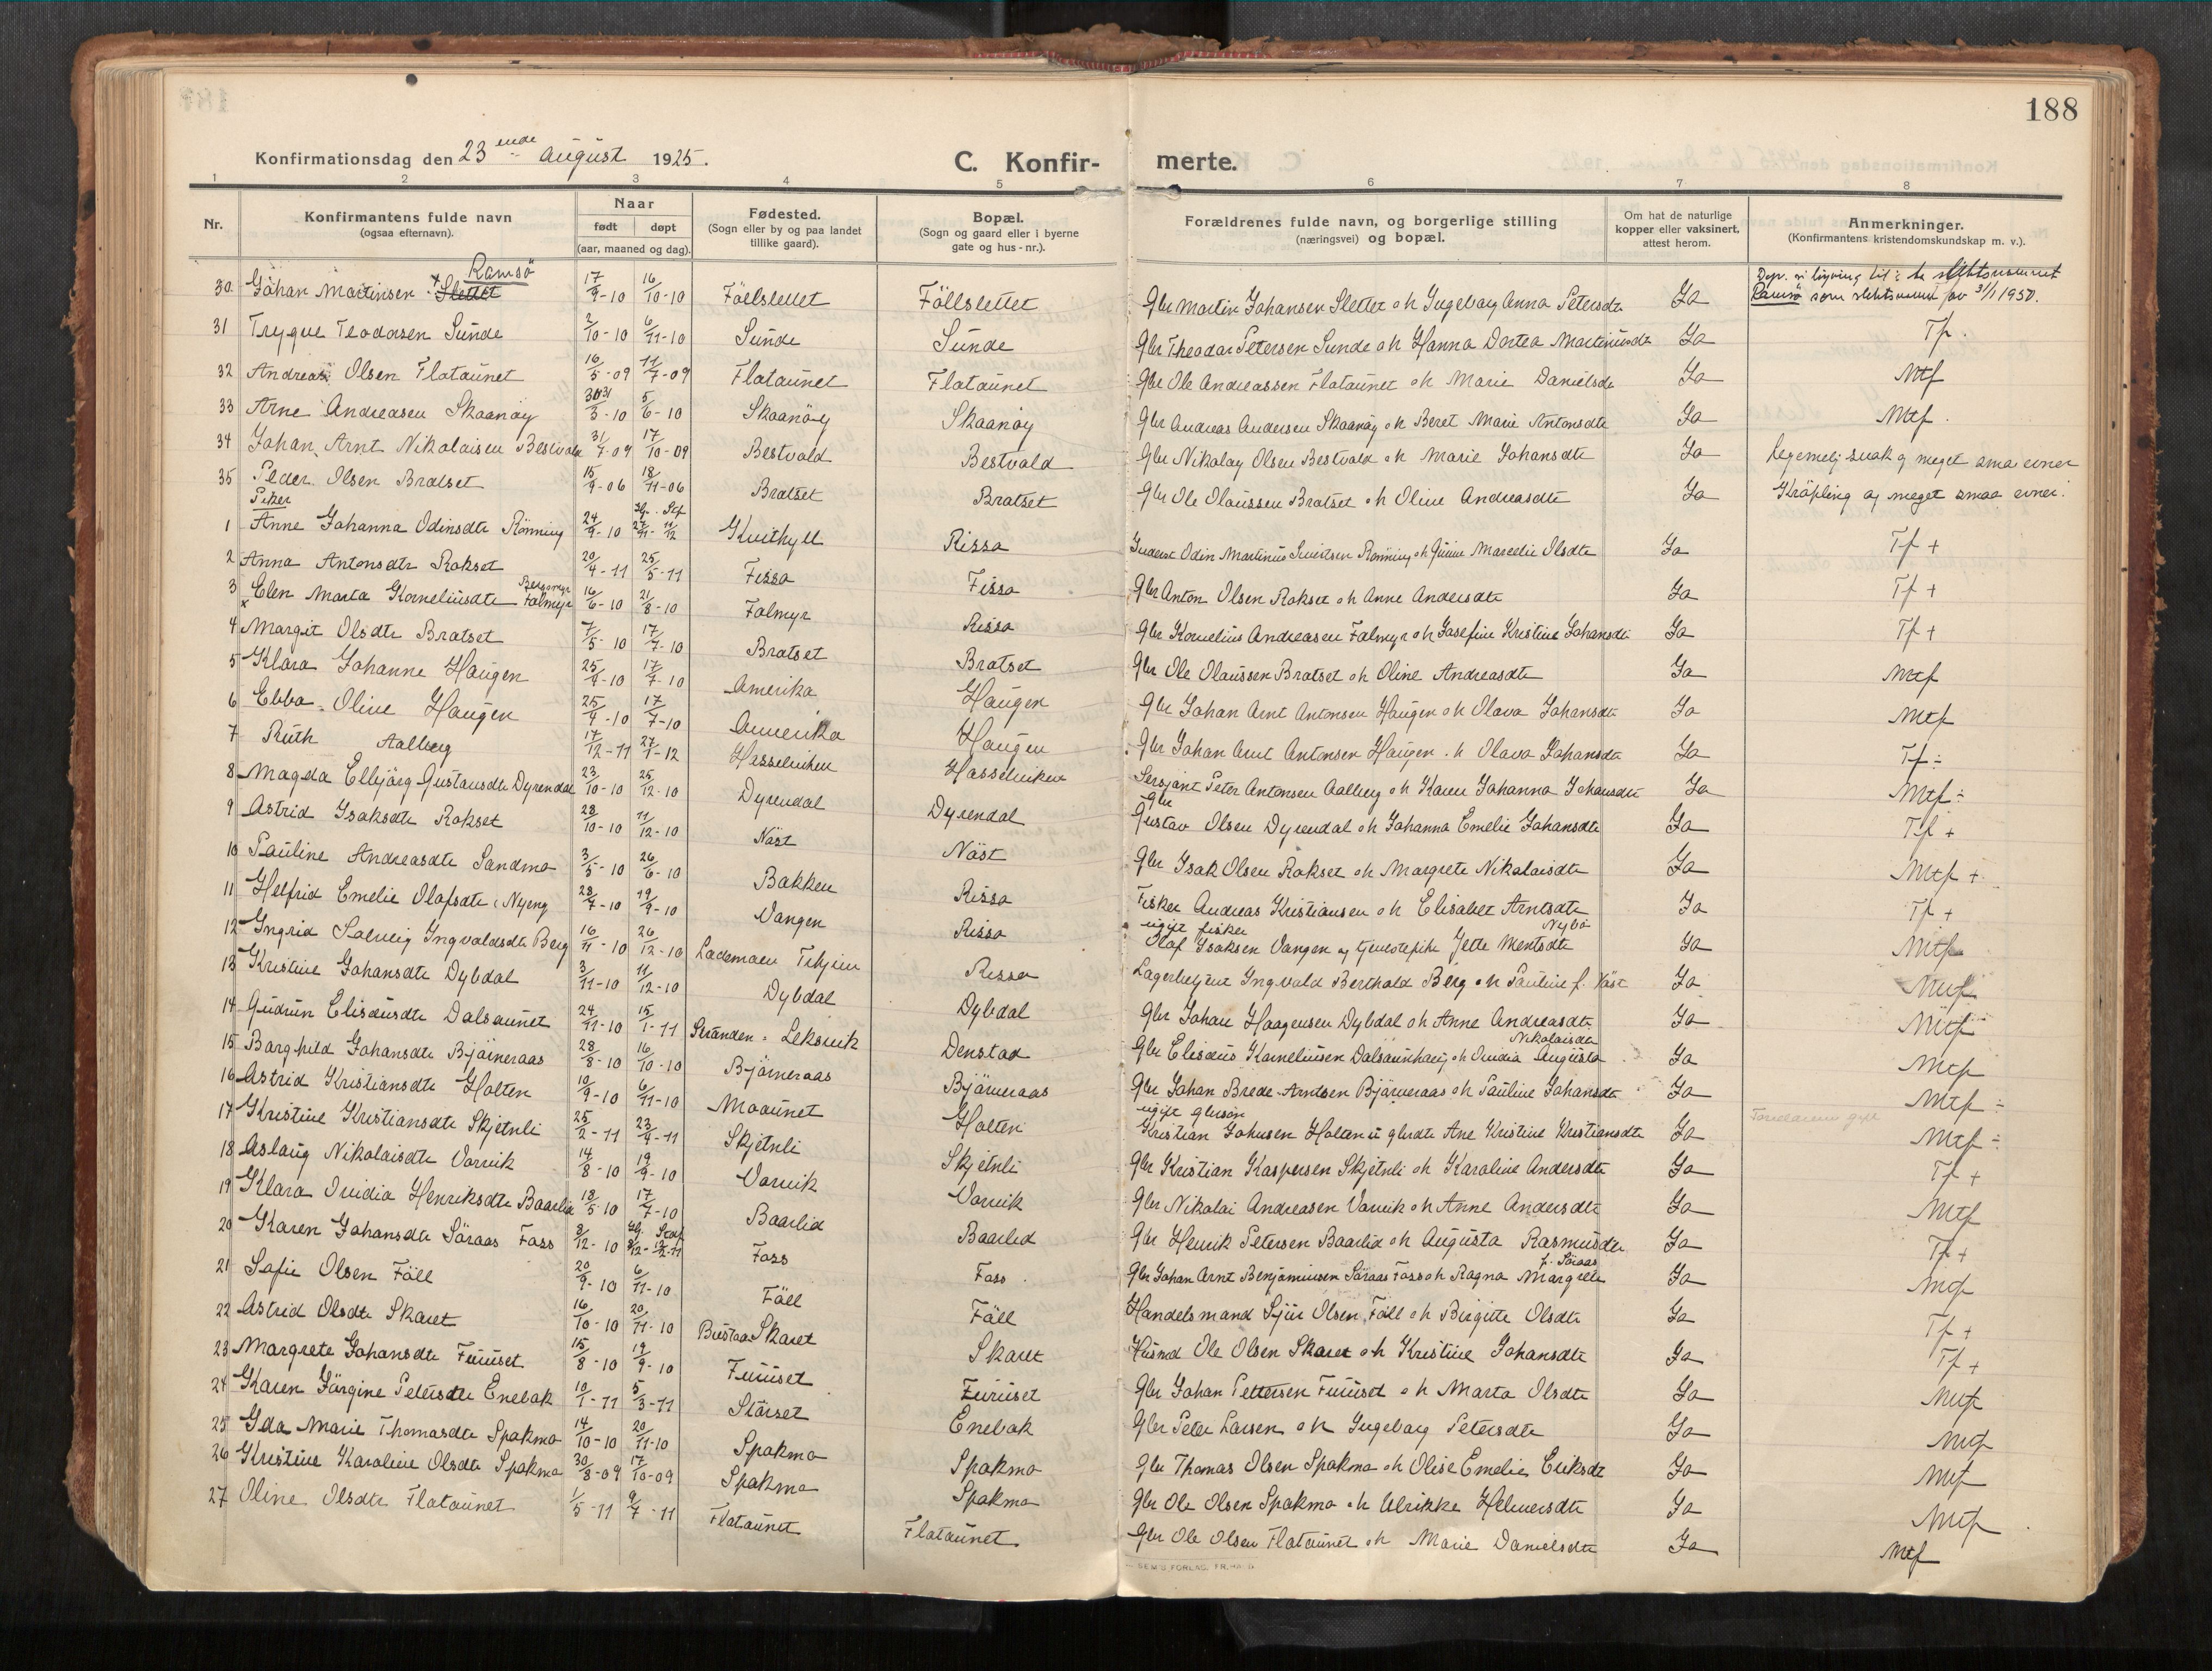 188
Konfirmationsdag den 23 ende August 1925.
C. Konfir-
merte.
1 2 3 4 5 6 7 8
Nr.
Konfirmantens fulde navn
(ogsaa efternavn).
Naar
født døpt
(aar, maaned og dag).
Fødested.
(Sogn eller by og paa landet
tillike gaard).
Bopæl.
(Sogn og gaard eller i byerne
gate og hus-nr.).
Forældrenes fulde navn, og borgerlige stilling
(næringsvei) og bopæl.
Om hat de naturlige
kopper eller vaksinert,
attest herom.
Anmerkninger.
(Konfirmantens kristendomskundskap m. v.).
Ramsö
30 Johan Martinsen Slettet 17/9-10 16/10-10 Föllslettet Föllslettet Gbr Martin Johansen Slettet o h Ingeborg Anna Petersdtr Ja
Ramsö som slektsnavn av 3/1 1950.
31 Trygve Teodorsen Sunde 2/10-10 6/11-10 Sunde Sunde Gbr Theodor Petersen Sunde o h Hanna Dortea Martinusdtr Ja Tf.
32 Andreas Olsen Flataunet 16/5-09 11/7-09 Flataunet Flataunet Gbr Ole Andreassen Flataunet o h Marie Danielsdtr Ja Mtf
33 Arne Andreasen Skaanöy 3/3-10 5/6-10 Skaanöy Skaanöy Gbr Andreas Andersen Skaanöy o h Beret Marie Antonsdtr Ja Mtf.
34 Johan Arnt Nikolaisen Bestvold 31/7-09 17/10-09 Bestvold Bestvold Gbr Nikolay Olsen Bestvold o h Marie Johansdtr Ja Legemlj svak og meget smaa evner
35 Peder Olsen Bratset 15/9-06 18/11-06 Bratset Bratset Gbr Ole Olaussen Bratset o h Oline Andreasdtr Ja Kröpling og meget smaa evner.
Piker
1 Anne Johanna Odinsdtr Rönning 24/9-10 27/11- 11/12 Kvithyll Rissa Odin Martinius Sivertsen Rönning o h Marcelie Olsdtr Ja Tf +
2 Anna Antonsdtr Rokset 20/4-11 25/5-11 Fissa Fissa Gbr Anton Olsen Rokset o h Anne Andersdtr Ja Tf +
3 Elen Marta Korneliusdtr Falmyr 16/6-10 21/8-10 Falmyr Rissa Gbr Kornelius Andreasen Falmyr o h Josefine Kristine Johansdtr Ja Tf +
4 Margit Olsdtr Bratset 7/5-10 17/7-10 Bratset Bratset Gbr Ole Olaussen Bratset o h Oline Andreasdtr Ja Mtf
5 Klara Johanne Haugen 25/4-10 17/7-10 Amerika Haugen Gbr Johan Arnt Antonsen Haugen o h Olava Johansdtr Ja Mtf
6 Ebba Oline Haugen 25/4-10 17/7-10 Amerika Haugen Gbr Johan Arnt Antonsen Haugen o h Olava Johansdtr Ja Tf ÷
7 Ruth Aalberg 17/12-11 27/1-12 Hasselviken Hasselviken Sersjant Peter Antonsen Aalberg o h Karen Johanna Johansdtr Ja Mtf ÷
8 Magda Elbjörg Gustavsdtr Dyrendal 23/10-10 25/12-10 Dyrendal Dyrendal Gbr Gustav Olsen Dyrendal o h Johanna Emelie Johansdtr Ja Tf +
9 Astrid Isaksdtr Rokset 28/10-10 11/12-10 Näst Näst Gbr Isak Olsen Rokset o h Margrete Nikolaisdtr Ja Mtf +
10 Pauline Andreasdtr Sandmo 3/5-10 26/6-10 Bakken Rissa Fisker Andreas Kristiansen o h Elisabet Arntsdtr Ja Tf +
11 Helfrid Emelie Olafsdtr Nyeng 28/7-10 19/9-10 Vangen Rissa ugift fisker Olaf Isaksen Vangen og tjenestepike Jette Mentsdtr Nybö Ja Mtf
12 Ingrid Solveig Ingvaldsdtr Berg 16/11-10 26/12-10 Lademoen Rissa Lagerbetjent Ingvald Berthold Berg o h Pauline f. Näst Ja Mtf
13 Kristine Johansdtr Dybdal 3/11-10 11/12-10 Dybdal Dybdal Gbr Johan Haagensen Dybdal o h Anne Andreasdtr. Ja Mtf
14 Gudrun Elisæusdtr Dalsaunet 24/11-10 15/1-11 Stranden Leksvik Denstad Gbr Elisæus Korneliusen Dalsaunhaug o h Ovidia Augusta Nikolaisdtr Ja Mtf
15 Borghild Johansdtr Björneraas 28/8-10 16/10-10 Björneraas Björneraas Gbr Johan Brede Arntsen Björneraas o h Pauline Johansdtr Ja Mtf ÷
16 Astrid Kristiansdtr Holten 10/9-10 6/11-10 Moaunet Holten ugift gbrsön Kristian Johnsen Holten u gbrdtr Ane Kristine Kristiansdtr Ja Mtf ÷
17 Kristine Kristiansdtr Skjetnli 25/2-11 23/4-11 Skjetnli Skjetnli Gbr Kristian Kaspersen Skjetnli o h Karoline Andersdtr Ja Tf +
18 Aslaug Nikolaisdtr Vorvik 14/8-10 19/9-10 Vorvik Vorvik Gbr Nikolai Andreasen Vorvik o h Anne Andersdtr Ja Mtf
19 Klara Ovidia Henriksdtr Baarlid 18/5-10 17/7-10 Baarlid Baarlid Gbr Henrik Petersen Baarlid o h Augusta Rasmusdtr Ja Tf +
20 Karen Johansdtr Söraas Foss 8/12-10 Foss Foss Gbr Johan Arnt Benjaminsen Söraas Foss o h Ragna Margrete f. Söraas Ja Mtf
21 Sofie Olsen Föll 20/9-10 6/11-10 Föll Föll Handelsmand Sjur Olsen Föll o h Birgitte Olsdtr Ja Tf +
22 Astrid Olsdtr Skaret 16/10-10 20/11-10 Skaret Skaret Husmd Ole Olsen Skaret o h Kristine Johansdtr Ja Tf +
23 Margrete Johansdtr Furuset 15/8-10 19/9-10 Furuset Furuset Gbr Johan Pettersen Furuset o h Marta Olsdtr Ja Mtf
24 Karen Jörgine Petersdtr Enebak 10/1-11 5/3-11 Störset Enebak Gbr Peter Larsen o h Ingeborg Petersdtr Ja Mtf
25 Ida Marie Thomasdtr Spakmo 14/10-10 20/11-10 Spakmo Spakmo Gbr Thomas Olsen Spakmo o h Olise Emelie Eriksdtr Ja Mtf
26 Kristine Karoline Olsdtr Spakmo 30/8-09 17/10-09 Spakmo Spakmo Gbr Ole Olsen Spakmo o h Ulrikke Helmersdtr Ja Mtf
27 Oline Olsdtr Flataunet 1/5-11 9/7-11 Flataunet Flataunet. Gbr Ole Olsen Flataunet o h Marie Danielsdtr Ja Mtf